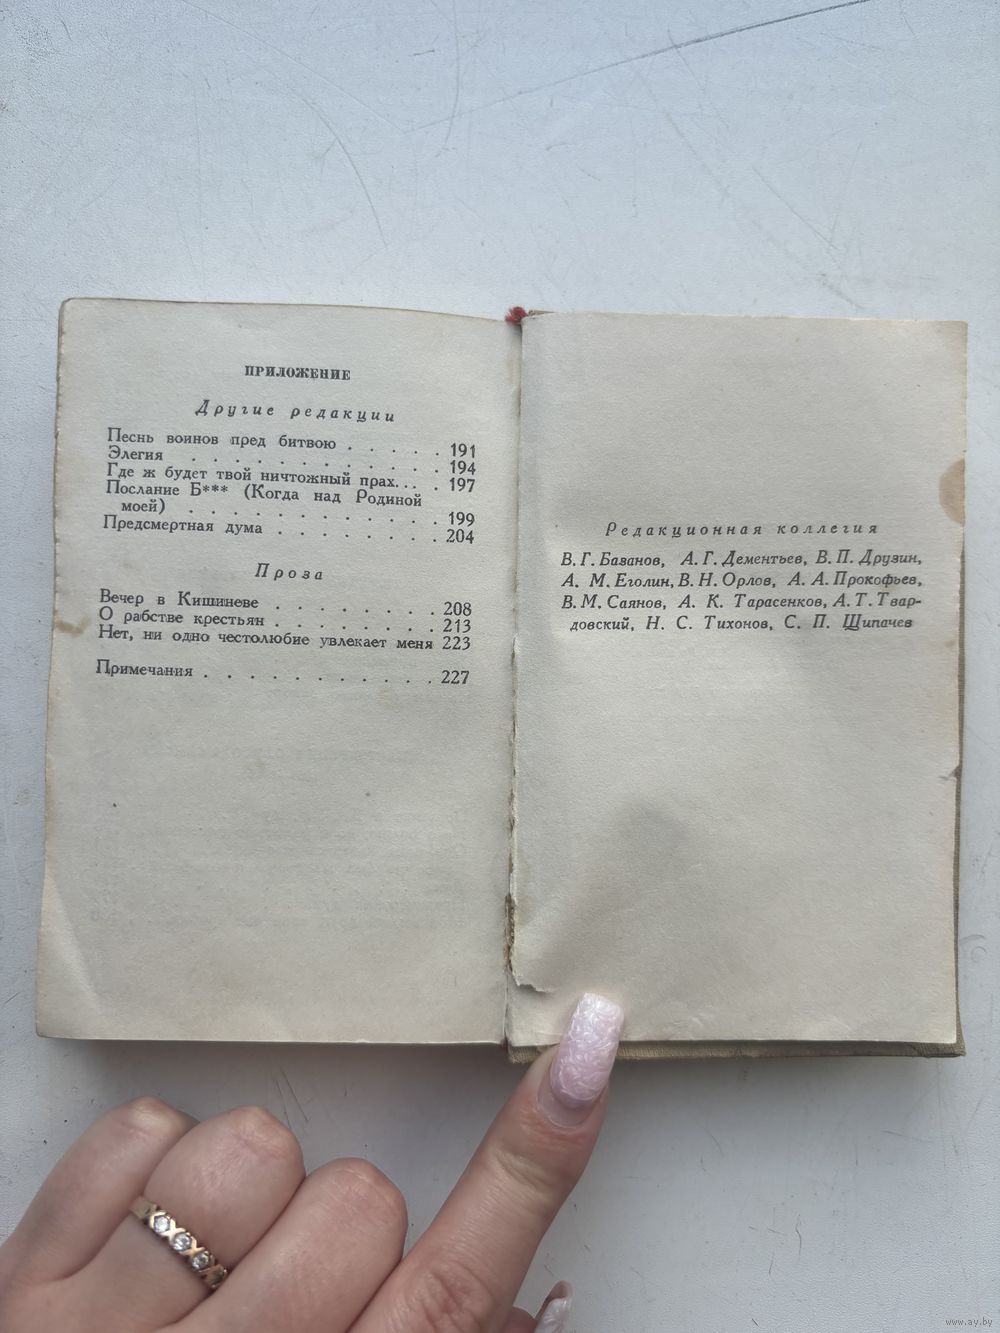 ПРИЛОЖЕНИЕ
Другие редакции
Песнь воинов пред битвою . . . . . 191
Элегия . . . . . . . . . . . . 194
Где ж будет твой ничтожный прах. . . . 197
Послание Б*** (Когда над Родиной
моей) . . . . . . . . . . . . 199
Предсмертная дума . . . . . . . . 204
Проза
Вечер в Кишиневе . . . . . . . . 208
О рабстве крестьян . . . . . . . . 213
Нет, ни одно честолюбие увлекает меня 223
Примечания . . . . . . . . . . . . 227
Редакционная коллегия
В. Г. Базанов, А. Г. Дементьев, В. П. Друзин,
А. М. Еголин, В. Н. Орлов, А. А. Прокофьев,
В. М. Саянов, А. К. Тарасенков, А. Т. Твар-
довский, Н. С. Тихонов, С. П. Щипачев
www.ay.by